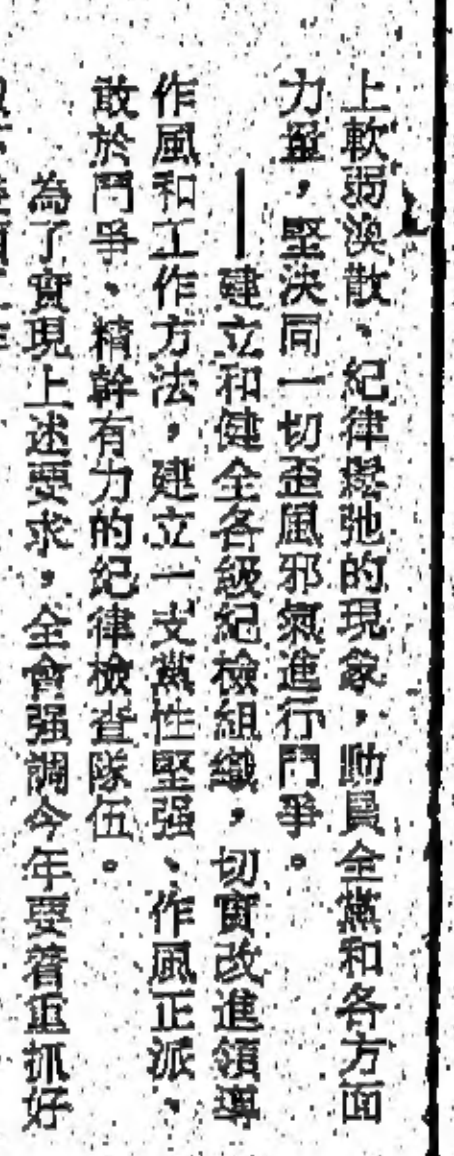 上軟弱渙散、紀律鬆弛的現象，動員全黨和各方面
力量，堅決同一切歪風邪氣進行鬥爭。
——建立和健全各級紀檢組織，切實改進領導
作風和工作方法，建立一支黨性堅强、作風正派、
敢於鬥爭、精幹有力的紀律檢查隊伍。
為了實現上述要求，全會强調今年要着重抓好